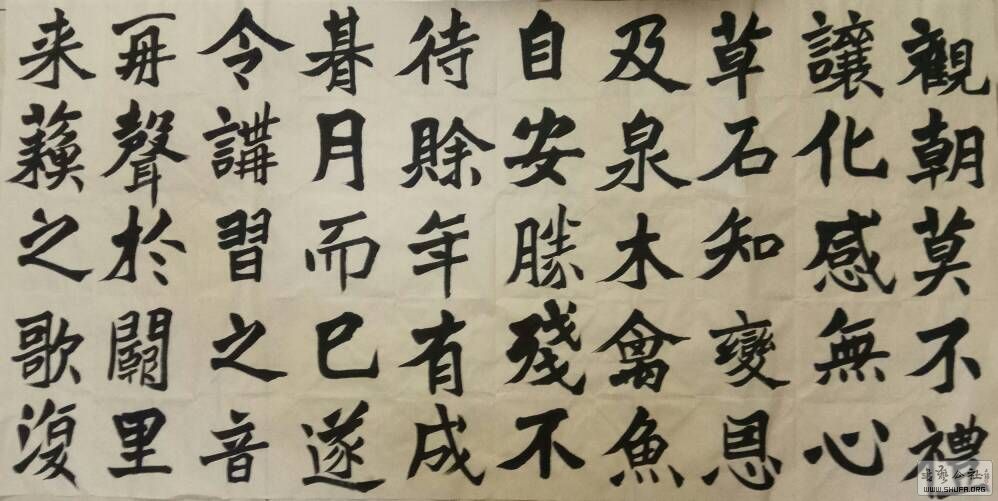 觀朝莫不禮
讓化感無心
草石知變恩
及泉木禽魚
自安勝殘不
待賒年有成
朞月而已遂
令講習之音
再聲於闕里
来蘓之歌復
书艺公社
WWW.SHUFA.ORG